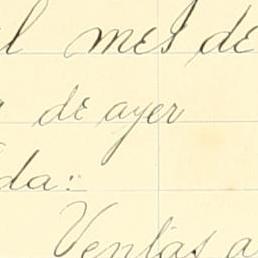 el mes de
de ayer
da:
Ventas a